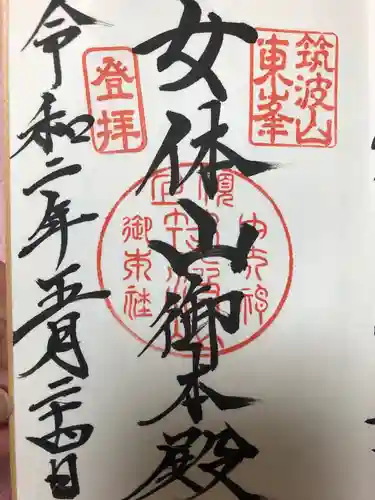 筑波山
東峯
女体山御本殿
登拝
令和二年五月二十四日